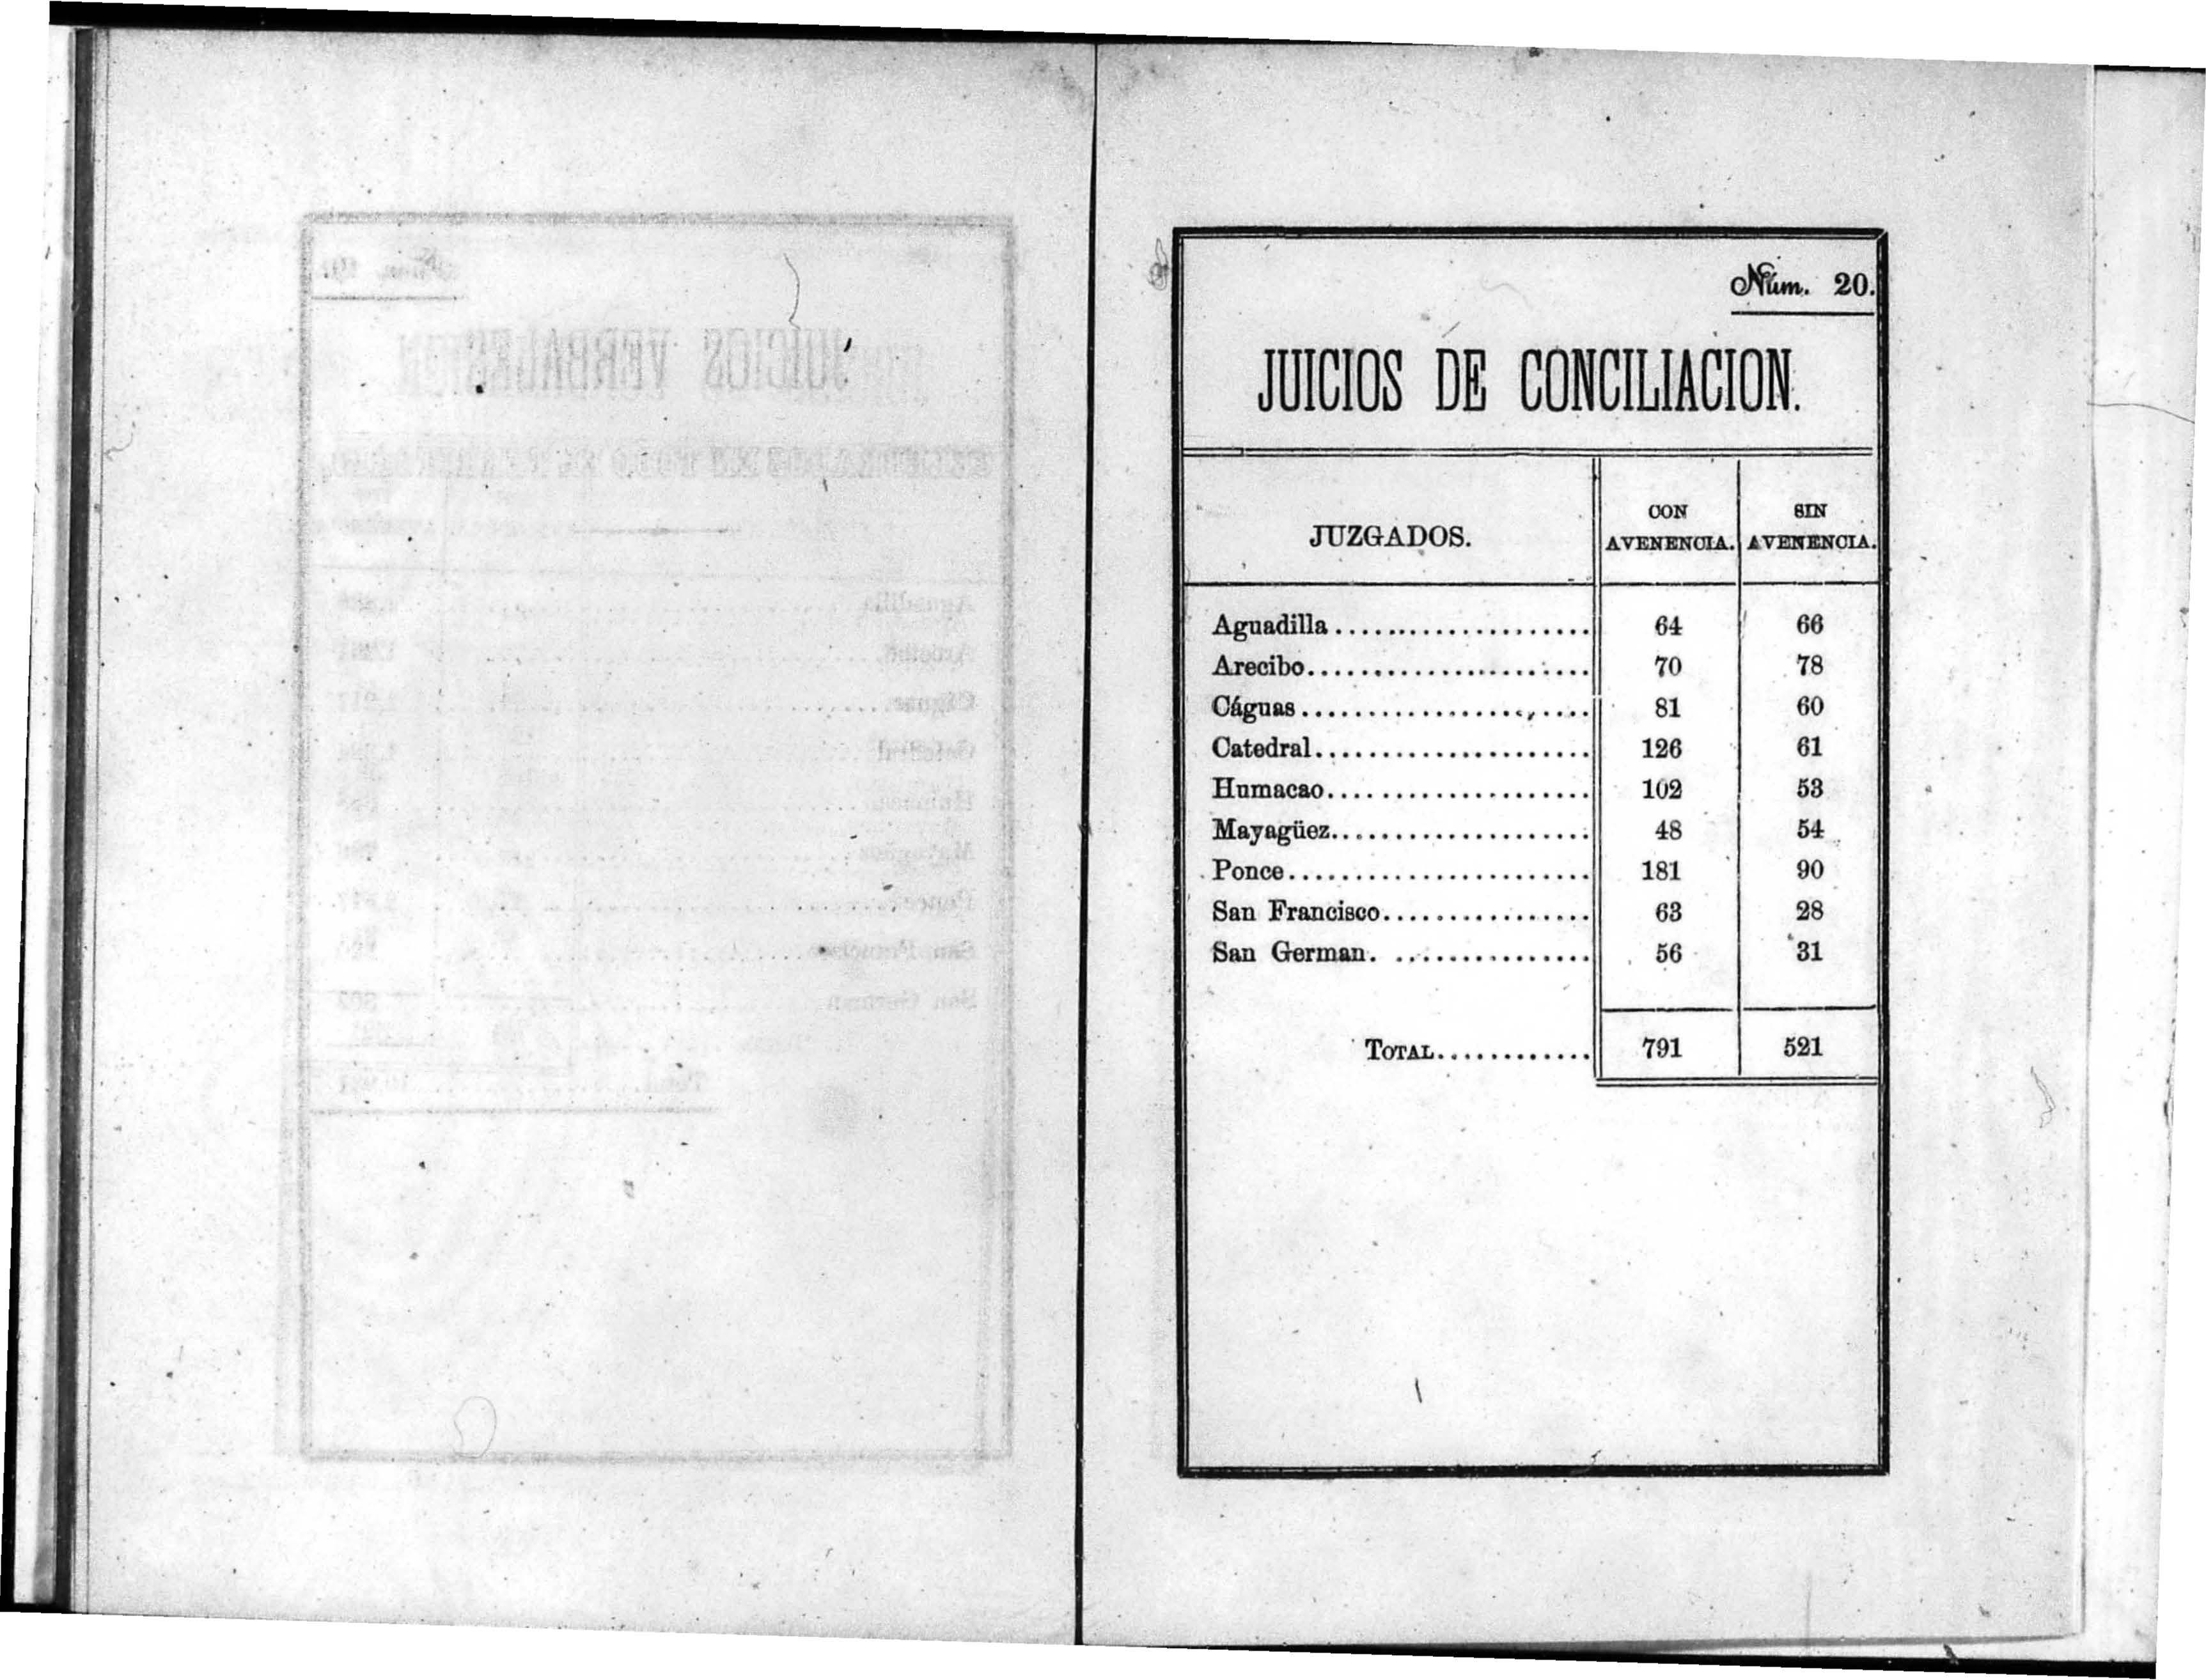 Núm. 20.
JUICIOS DE CONCILIACION.
JUZGADOS.
CON AVENENCIA.
SIN AVENENCIA.
Aguadilla 64 66
Arecibo 70 78
Cáguas 81 60
Catedral 126 61
Humacao 102 53
Mayagüez 48 54
Ponce 181 90
San Francisco 63 28
San German. 56 31
TOTAL 791 521